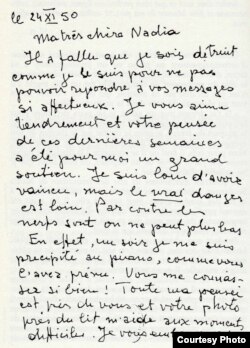 le 24 XI 50
Ma très chère Nadia
Il a fallu que je sois détruit
comme je le suis pour ne pas
pouvoir répondre à vos messages
si affectueux. Je vous aime
tendrement et votre pensée
de ces dernières semaines
a été pour moi un grand
soutien. Je suis loin d'avoir
vaincu, mais le vrai danger
est loin. Par contre les
nerfs sont on ne peut plus bas
En effet, un soir je me suis
précipité au piano, comme vous
l'avez prévu. Vous me connais-
sez si bien! Toute ma pensée
est près de vous et votre photo
près du lit m'aide aux moments
difficiles. Je vous
Courtesy Photo